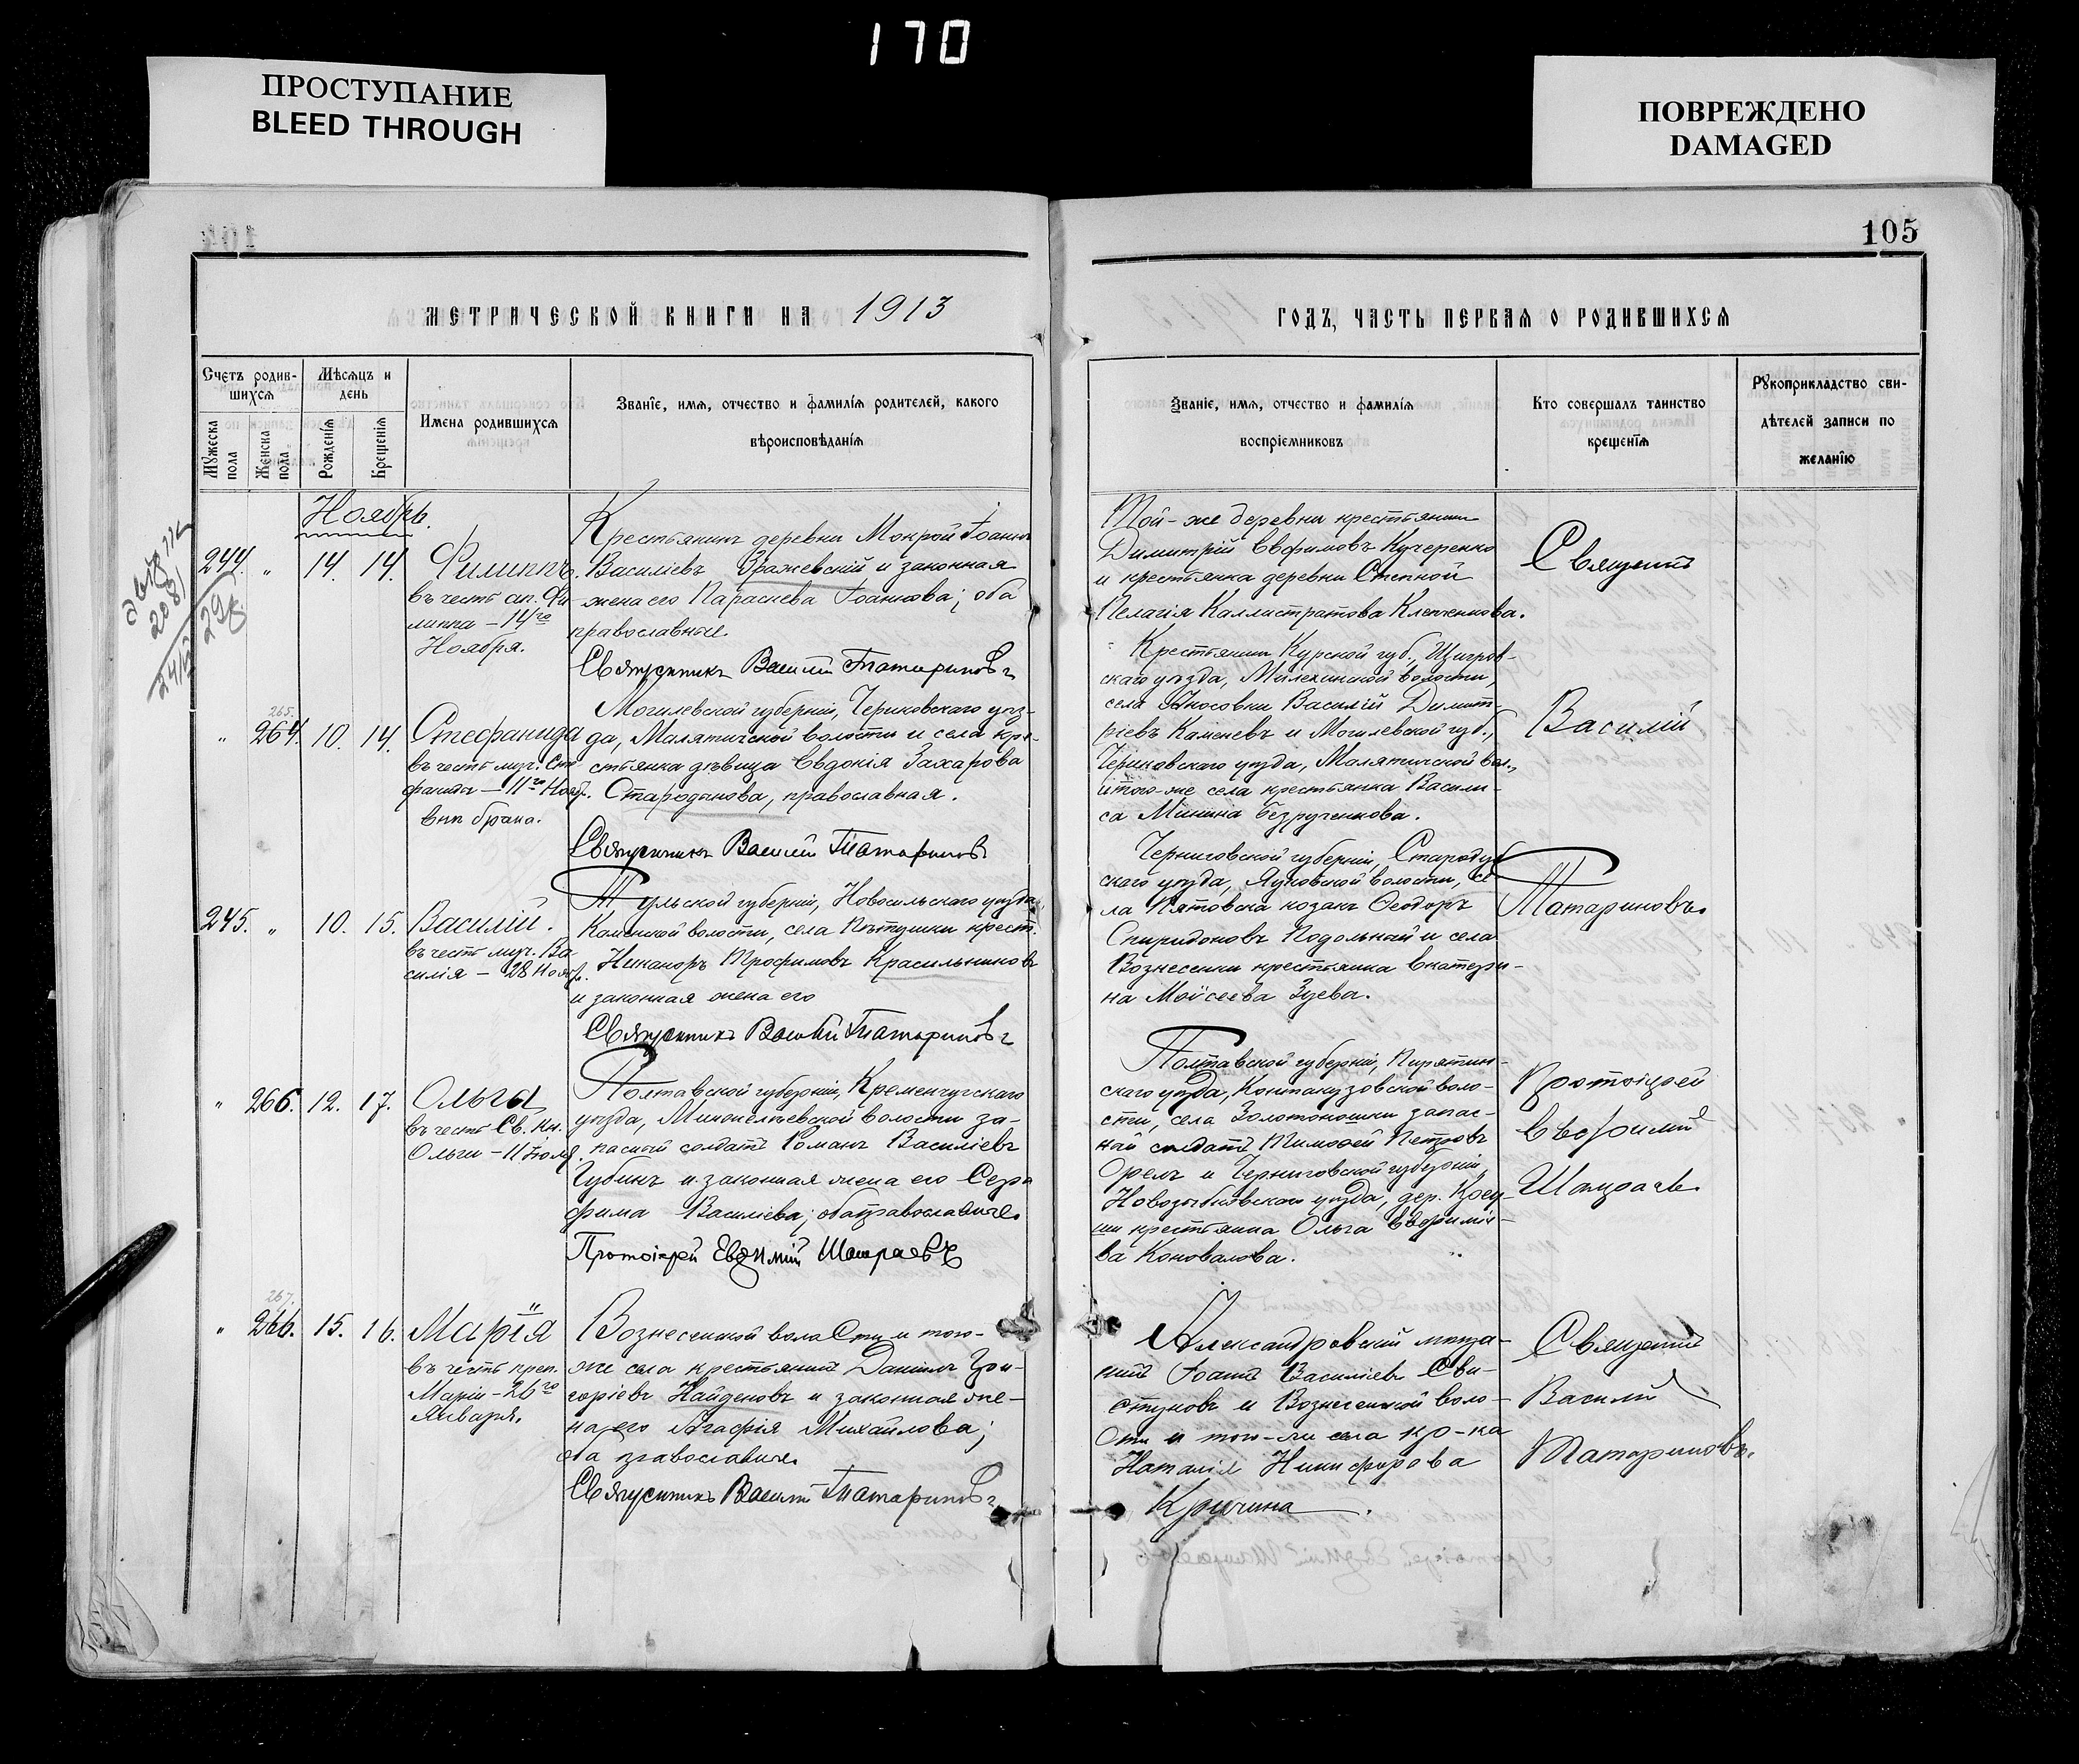 170
ПРОСТУПАНИЕ
BLEED THROUGH
ПОВРЕЖДЕНО
DAMAGED
105
МЕТРИЧЕСКОЙ КНИГИ НА 1913
ГОДЪ, ЧАСТЬ ПЕРВАЯ О РОДИВШИХСЯ
Счетъ родив-
шихся
Мужеска пола
Женска пола
Мѣсяцъ и
день
Рожденія
Крещенія
Имена родившихся
Званіе, имя, отчество и фамилія родителей, какого
вѣроисповѣданія
Званіе, имя, отчество и фамилія
воспріемниковъ
Кто совершалъ таинство
крещенія
Рукоприкладство сви-
дѣтелей записи по
желанію
Ноябрь.
244. „ 14. 14.
Филиппъ.
въ честь ап. Фи-
липпа – 14го
Ноября.
Крестьянинъ деревни Мокрой Іоаннъ
Василіевъ Зражевскій и законная
жена его Параскева Іоаннова; оба
православные.
Священникъ Василій Татариновъ
Той-же деревни крестьянинъ
Димитрій Евфимовъ Кучеренко
и крестьянка деревни Степной
Пелагія Каллистратова
Священникъ
265.
„ 264. 10. 14.
Стефанида
въ честь муч. Сте
фаниды – 11го Нояб.
внѣ брака.
Могилевской губерніи, Чериковскаго уѣз-
да, Малятичской волости и села кре-
стьянка дѣвица Евдокія Захарова
Староданова, православная.
Священникъ Василій Татариновъ
Крестьянинъ Курской губ., Щигров-
скаго уѣзда, волости,
села Василій Димит-
ріевъ Каменевъ и Могилевской губ.,
Чериковскаго уѣзда, Малятичской вол.,
и того-же села крестьянка Васили-
са Минина Безрученкова.
Василій
245. „ 10. 15.
Василій.
въ честь муч. Ва
силія – 28 Нояб.
Тульской губерніи, Новосильскаго уѣзда
Каменской волости, села Пѣтушки крест.
Никаноръ Трофимовъ Красильниковъ
и законная жена его
Священникъ Василій Татариновъ
Черниговской губерніи, Стародуб
скаго уѣзда, волости, се
ла Пятовска козакъ Ѳеодоръ
Спиридоновъ Подольный и села
Вознесенки крестьянка Екатери-
на Моѵсеева Зуева.
Татариновъ.
„ 266. 12. 17.
Ольга
въ честь Св. Кн.
Ольги – 11 Іюля.
Полтавской губерніи, Кременчугскаго
уѣзда, волости за-
пасный солдатъ Романъ Василіевъ
Губинъ и законная жена его Сера
фима Василіева; оба православные.
Протоіерей Евѳимій Шамраевъ
Полтавской губерніи, Пирятин-
скаго уѣзда, воло-
сти, села Золотоношки запас-
ный солдатъ Тимоѳей Петровъ
Орелъ и Черниговской губерніи,
Новозыбковскаго уѣзда, дер.
крестьянка Ольга Евфиміе-
ва Коновалова.
Протоіерей
Евѳимій
Шамраевъ.
267.
„ 266. 15. 16.
Марія
въ честь преп.
Маріи – 26го
Января.
Вознесенской волости и того-
же села крестьянинъ Даніилъ Гри-
горіевъ Найденовъ и законная же-
на его Агафія Михайлова;
оба православные.
Священникъ Василій Татариновъ
Александровскій мѣща-
нинъ Іоаннъ Василіевъ Сви-
стуновъ и Вознесенской воло-
сти и того-же села кр-ка
Наталія Никифорова
Кричина.
Священникъ
Василій
Татариновъ.